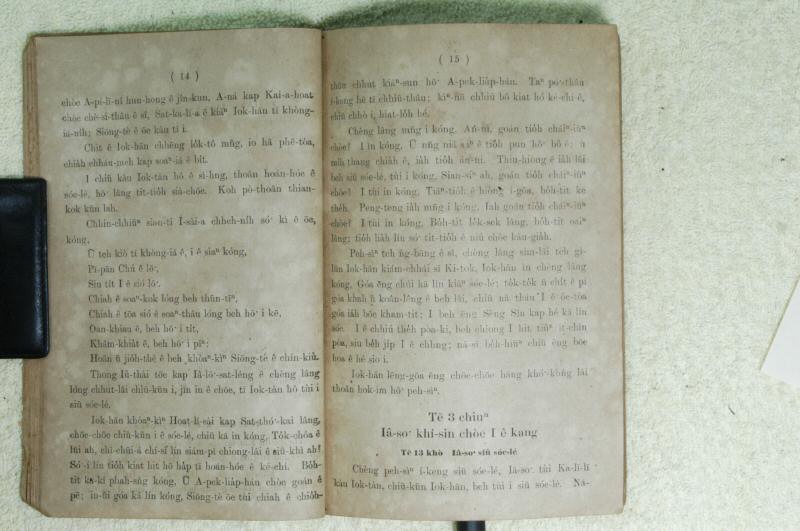 ( 14 )
chòe A-pi-lī-ní hun-hong ê jîn-kun. A-ná kap Kai-a-hoat
chòe chè-si-thâu ê sî, Sat-ka-lī-a ê kiáⁿ Iok-hān tī khòng-
iá-nih; Siōng-tè ê ōe kàu tī i.
Chit ê Iok-hān chhēng lo̍k-tô mn̂g, io hâ phê-tòa,
chia̍h chháu-meh kap soaⁿ-iá ê bit.
I chiū kàu Iok-tàn hô ê sì-hng, thoân hoán-hóe ê
sóe-lé, hō͘ lâng tit-tio̍h sià-chōe. Koh pò-thoân thian-
kok kūn lah.
Chhin-chhiūⁿ sian-ti Í-sài-a chheh-nih só͘ kì ê ōe,
kóng,
Ū teh kiò tī khòng-iá ê, i ê siaⁿ kóng,
Pī-pān Chú ê lō͘,
Siu tit I ê sió lō͘.
Chiah ê soaⁿ-kok lóng beh thūn-tīⁿ,
Chiah ê tōa sió ê soaⁿ-thâu lóng beh hō͘ i kē,
Oan-khiau ê, beh hō͘ i tit,
Khām-khia̍t ê, beh hō͘ i pîⁿ:
Hoān ū jio̍h-thé ê beh khòaⁿ-kìⁿ Siōng-tè ê chín-kiù.
Thong Iû-thài tōe kap Iâ-lō͘-sat-léng ê chèng lâng
lóng chhut-lâi chiū-kūn i, jīn in ê chōe, tī Iok-tàn hô tùi i
siū sóe-lé.
Iok-hān khòaⁿ-kìⁿ Hoat-lī-sài kap Sat-thó͘-kai lâng,
chōe-chōe chiū-kūn i ê sóe-lé, chiū kā in kóng, To̍k-chôa ê
lūi ah, chī-chūi-á chí-sī lín siám-pī chiong-lâi ê siū-khì ah?
Só͘-í lín tio̍h kiat hit hō ha̍p tī hoán-hóe ê ké-chí. Bo̍h-
tit ka-kī phah-sǹg kóng, Ū A-pek-lia̍p-hán chòe goán ê
pē; in-ūi góa kā lín kóng, Siōng-tè ōe tùi chiah ê chio̍h-
( 15 )
thâu chhut kiáⁿ-sun hō͘ A-pek-lia̍p-hán. Taⁿ pó͘-thâu
í-keng hē tī chhiū-thâu; kìⁿ-nā chhiū bô kiat hó ké-chí ê,
chiū chhò i, hiat-lo̍h hé.
Chèng lâng mn̄g i kóng, Án-ni, goán tio̍h cháiⁿ-iūⁿ
chòe? I ìn kóng, Ū nn̄g niá saⁿ ê tio̍h pun hō͘ bô ê; ū
mi̍h thang chia̍h ê, ia̍h tio̍h án-ni. Thiu-hiòng ê ia̍h lâi
beh siū sóe-lé, tùi i kóng, Sian-siⁿ ah, goán tio̍h cháiⁿ-iūⁿ
chòe? I tùi in kóng, Tiāⁿ-tio̍h ê hiòng í-gōa, bo̍h-tit ke
the̍h. Peng-teng ia̍h mn̄g i kóng, Iah goán tio̍h cháiⁿ-iūⁿ
chòe? I tùi in kóng, Bo̍h-tit le̍k-sek lâng, bo̍h-tit oaiⁿ
lâng; tio̍h lia̍h lín só͘ tit-tio̍h ê niû chòe káu-gia̍h.
Peh-sìⁿ teh ǹg-bāng ê sî, chèng lâng sim-lāi teh gî-
lūn Iok-hān kiám-chhái sī Ki-tok, Iok-hān ìn chèng lâng
kóng, Góa ēng chúi kā lín kiâⁿ sóe-lé; to̍k-to̍k ū chit ê pí
góa khah ū koân-lêng ê beh lâi, chiū nā tháu I ê ôe-tòa
góa ia̍h bōe kham-tit; I beh ēng Sèng Sîn kap hé kā lín
sóe. I ê chhiú the̍h pòa-ki, beh chiong I hit tiûⁿ it-chīn
pòa, siu be̍h ji̍p I ê chhng; nā-sī be̍h-hiúⁿ chiū ēng bōe
hoa ê hé sio i.
Iok-hān lēng-gōa ēng chōe-chōe hāng khó͘-khǹg lâi
thoân hok-im hō͘ peh-sìⁿ.
Tē 3 chiuⁿ
Iâ-so͘ khí-sin chòe I ê kang
Tē 13 khò Iâ-so͘ siū sóe-lé
Chèng peh-sìⁿ í-keng siū sóe-lé, Iâ-so͘ tùi Ka-lī-lī
kàu Iok-tàn, chiū-kūn Iok-hān, beh tùi i siū sóe-lé. Nā-